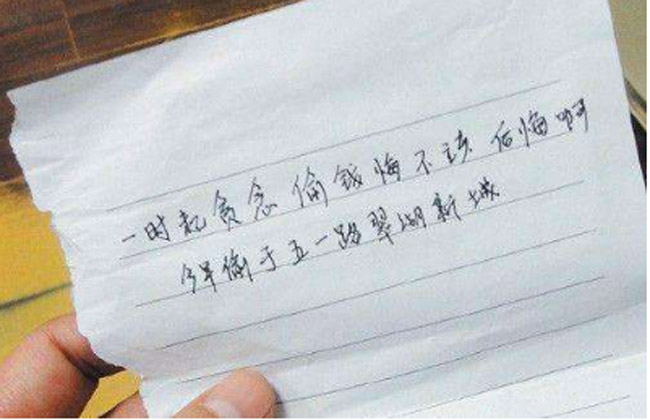 一时起贪念偷钱悔不该 后悔啊
今早偷于五一路翠湖新城